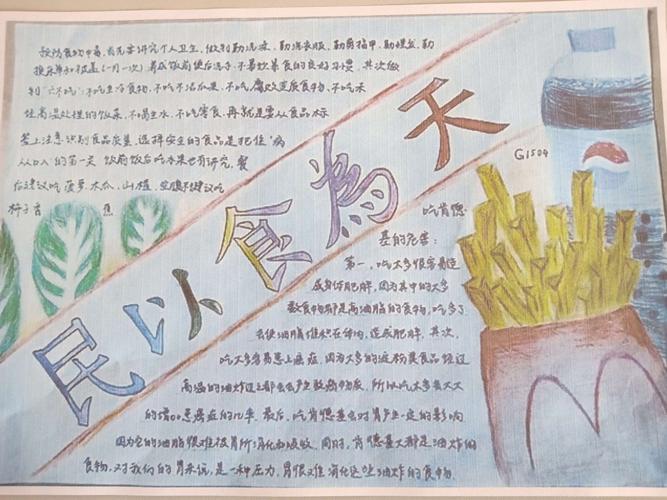 预防食物中毒,首先要讲究个人卫生,做到勤洗澡,勤洗衣服,勤剪指甲,勤理发,勤
换床单和被盖(一月一次)养成饭前便后洗手,不暴饮暴食的良好习惯,其次做
到"六不吃":不吃生冷食物,不吃不洁瓜果,不吃腐败变质食物,不吃未
经高温处理的饭菜,不喝生水,不吃零食,再就是要从食品标
签上注意,识别食品质量,选择安全的食品是把住"病
从口入"的第一关 饭前饭后吃水果也有讲究,餐
后建议吃 菠萝 木瓜,山楂,空腹不建议吃
柿子 香蕉
民以食为天
G1504
吃肯德
基的危害:
第一,吃太多很容易造
成身体肥胖,因为其中的大多
数食物都是高油脂的食物,吃多了
会使油脂堆积在体内,造成肥胖,其次,
吃太多容易患上癌症,因为大多的淀粉类食品经过
高温的油炸过后都会产生致癌物质,所以吃太多会大大
的增加患癌症的几率,最后,吃肯德基会对胃产生一定的影响
因为它的油脂很难被胃所消化和吸收,同时,肯德基大都是油炸的
食物,对我们的胃来说,是一种压力,胃很难消化这些油炸的食物.